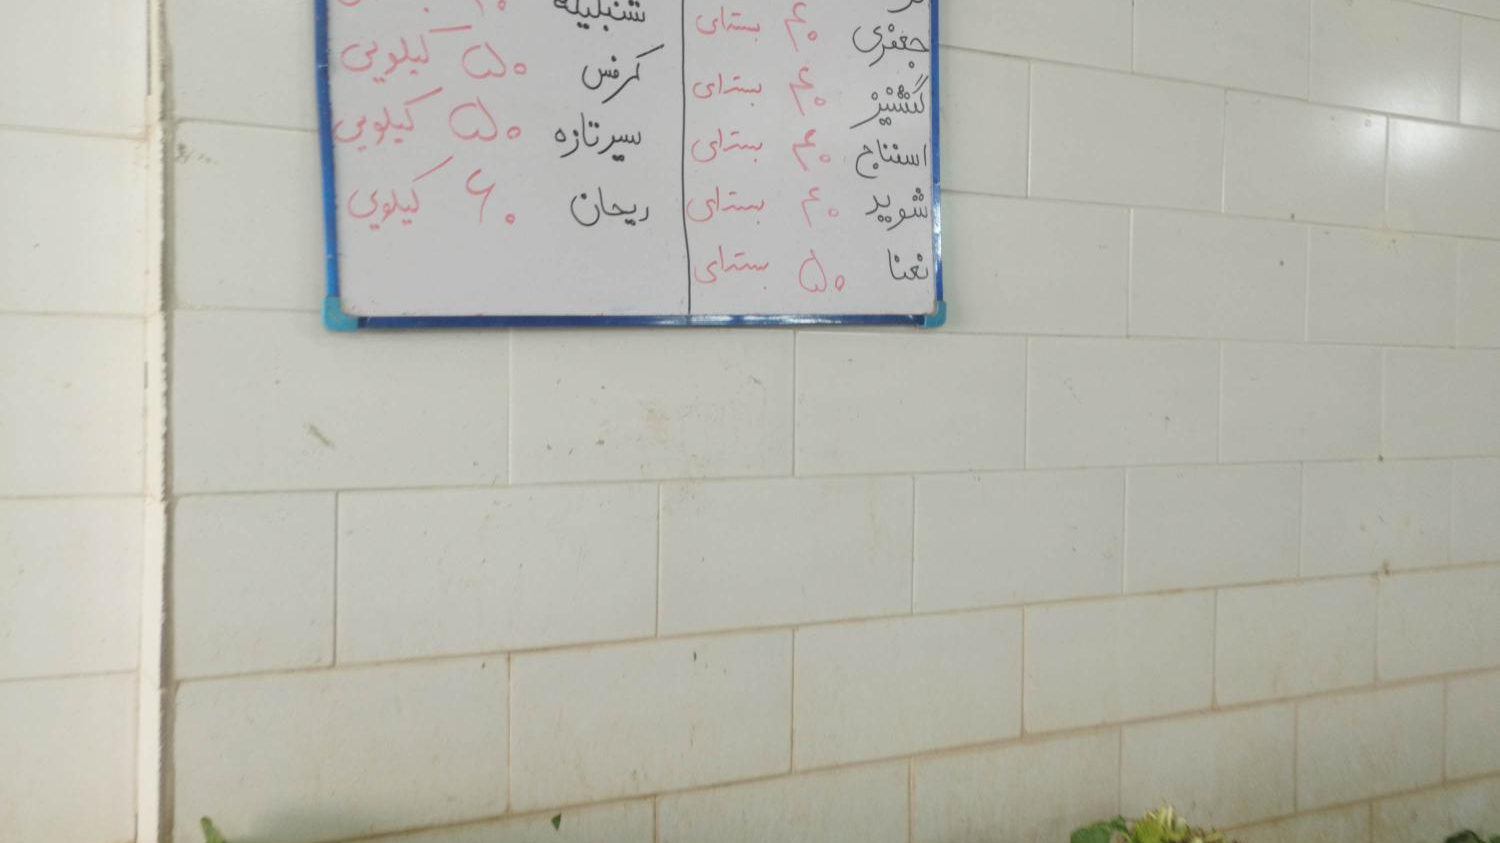 جعفری ۴۰ بسته‌ای
گشنیز ۴۰ بسته‌ای
اسفناج ۴۰ بسته‌ای
شوید ۴۰ بسته‌ای
نعنا ۵۰ بسته‌ای
شنبلیله
کرفس ۵۰ کیلویی
سیر تازه ۵۰ کیلویی
ریحان ۶۰ کیلویی